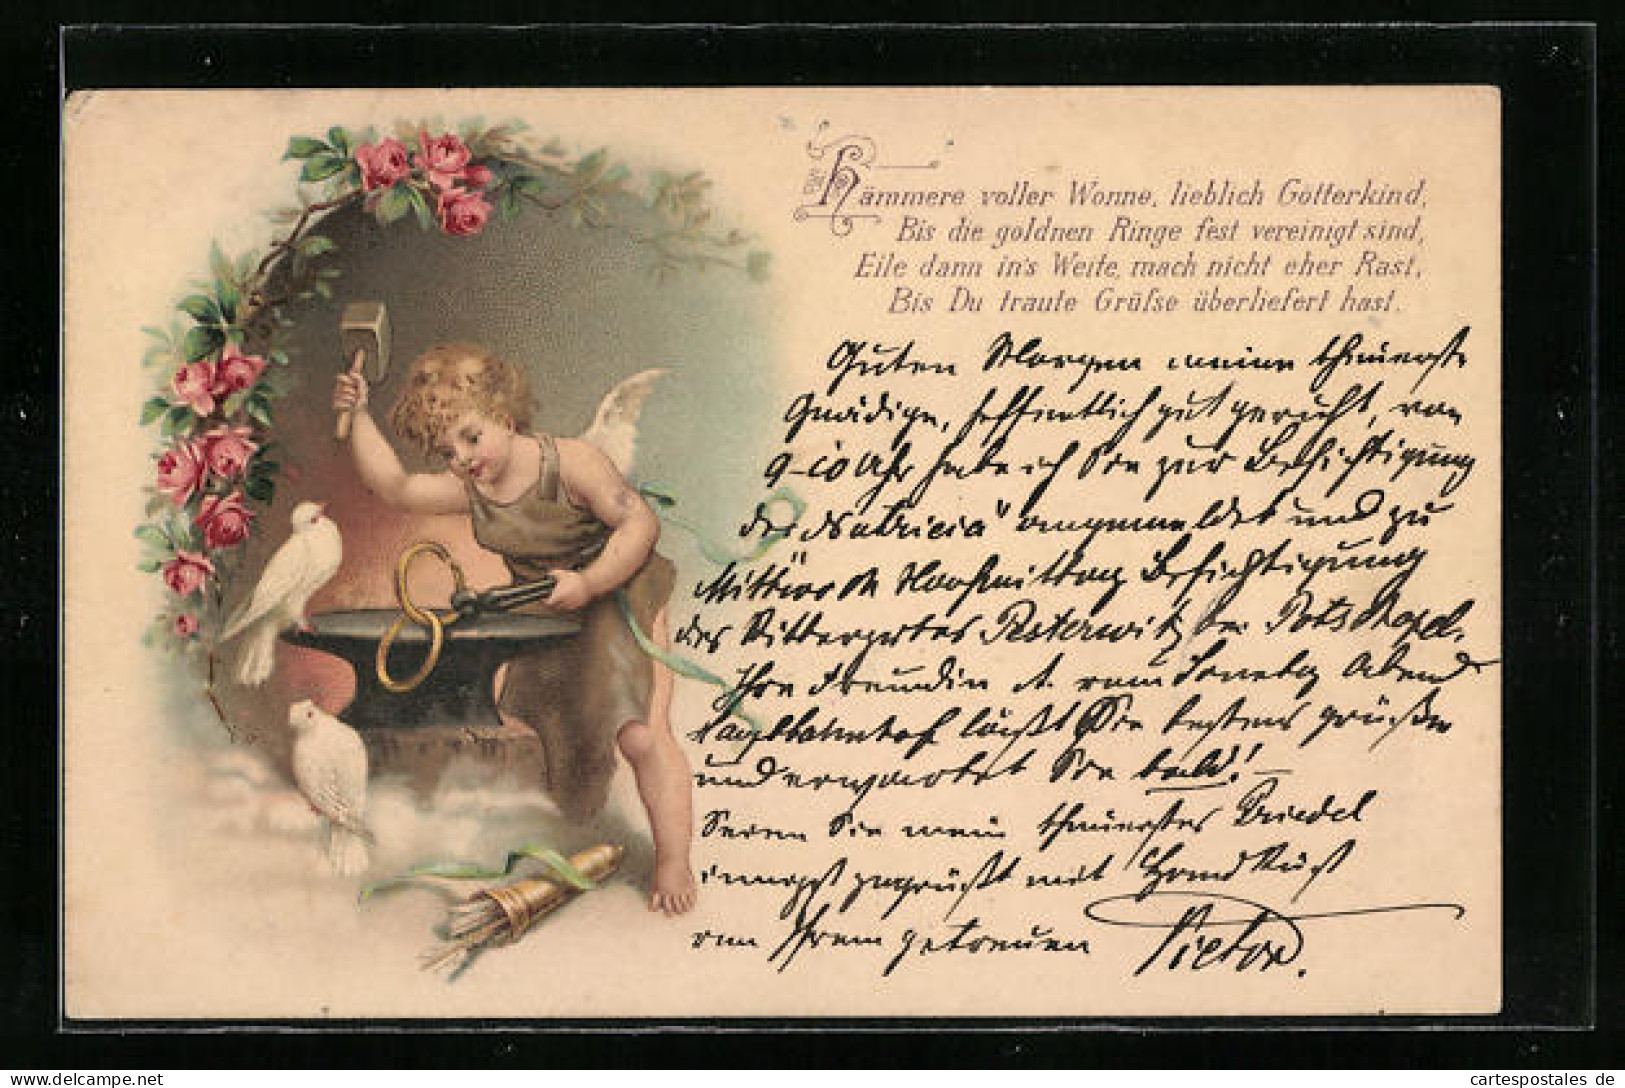 Hämmere voller Wonne, lieblich Götterkind,
Bis die goldnen Ringe fest vereinigt sind,
Eile dann in's Weite, mach nicht eher Rast,
Bis Du traute Grüße überliefert hast.
Guten Morgen meine theuerste
Gnädige, hoffentlich gut geruht, von
9-10 Uhr habe ich Sie zur Besichtigung
der „Natricia" angemeldet und zu
Mittwoch Nachmittag Besichtigung
des Rittergutes Pesterwitz bei Potschapel.
Ihre Freundin v. vom Abend
läßt Sie bestens grüßen
und erwartet Sie bald! –
Seien Sie mein theuerstes Friedel
innigst gegrüßt mit Handkuß
von Ihrem getreuen Victor.
cartespostales de